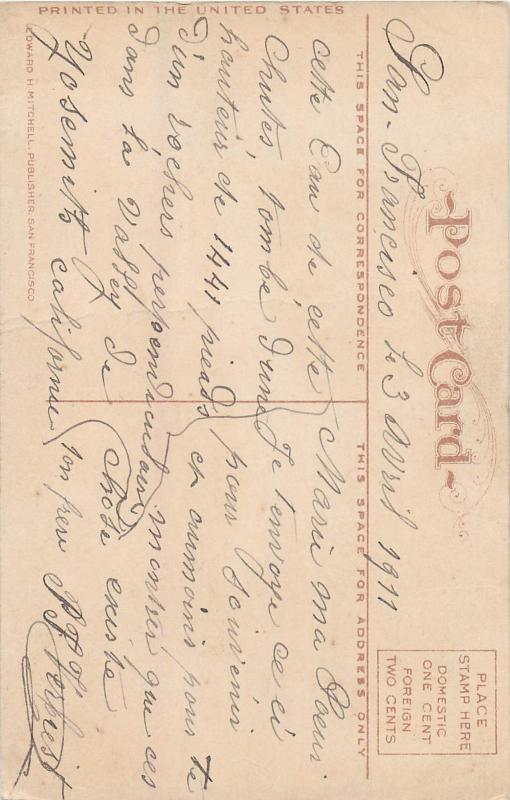 PRINTED IN THE UNITED STATES
Post Card
PLACE
STAMP HERE
DOMESTIC
ONE CENT
FOREIGN
TWO CENTS
San-Francisco le 3 Avril 1911
THIS SPACE FOR CORRESPONDENCE
cette Eau de cette
Chutes, tombe d'une
hauteur de 1441 pieds
d'un rochers perpendiculair
dans la Valley de
Yosemity californie
THIS SPACE FOR ADDRESS ONLY
Marie ma Soeur
Je t'envoye ce ci
pour Souvenir
et aumoins pour te
montrer que ces
Chose existe
ton frere P.F. Verhiest
EDWARD H. MITCHELL, PUBLISHER, SAN FRANCISCO